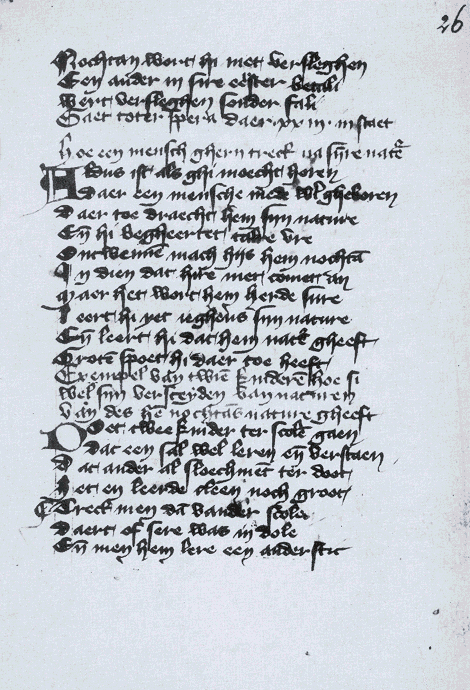 26
Nochtan wort hi niet versleghen
Een ander in sire eerster
Wert versleghen sonder fali
Gaet toter spera daer xx in staet
Hoe een mensch gheneghen treck na sire nature
Aldus ist als ghi moecht horen
Daer een mensche mede wert gheboren
Daer toe draecht hem sijn nature
Eñ hi begheertet talre vre
Ontwennē mach hijs hem nochtā
In dien dat hire niet comet an
Maer het wort hem herde sure
Leert hi yet ieghens sijn nature
Eñ leert hi dat hem nature gheeft
Groten spoet hi daer toe heeft
Exempel van tween kinderē hoe si
wel sijn versceyden van naturen
van des hē nochtās nature gheeft
Doet twee kinder ter scole gaen
Dat een sal wel leren eñ verstaen
Dat ander al sloechment ter doot
Het en leerde cleen noch groot
Treck men dā vander scole
Daert of sere was in dole
Eñ men hem lere een ander